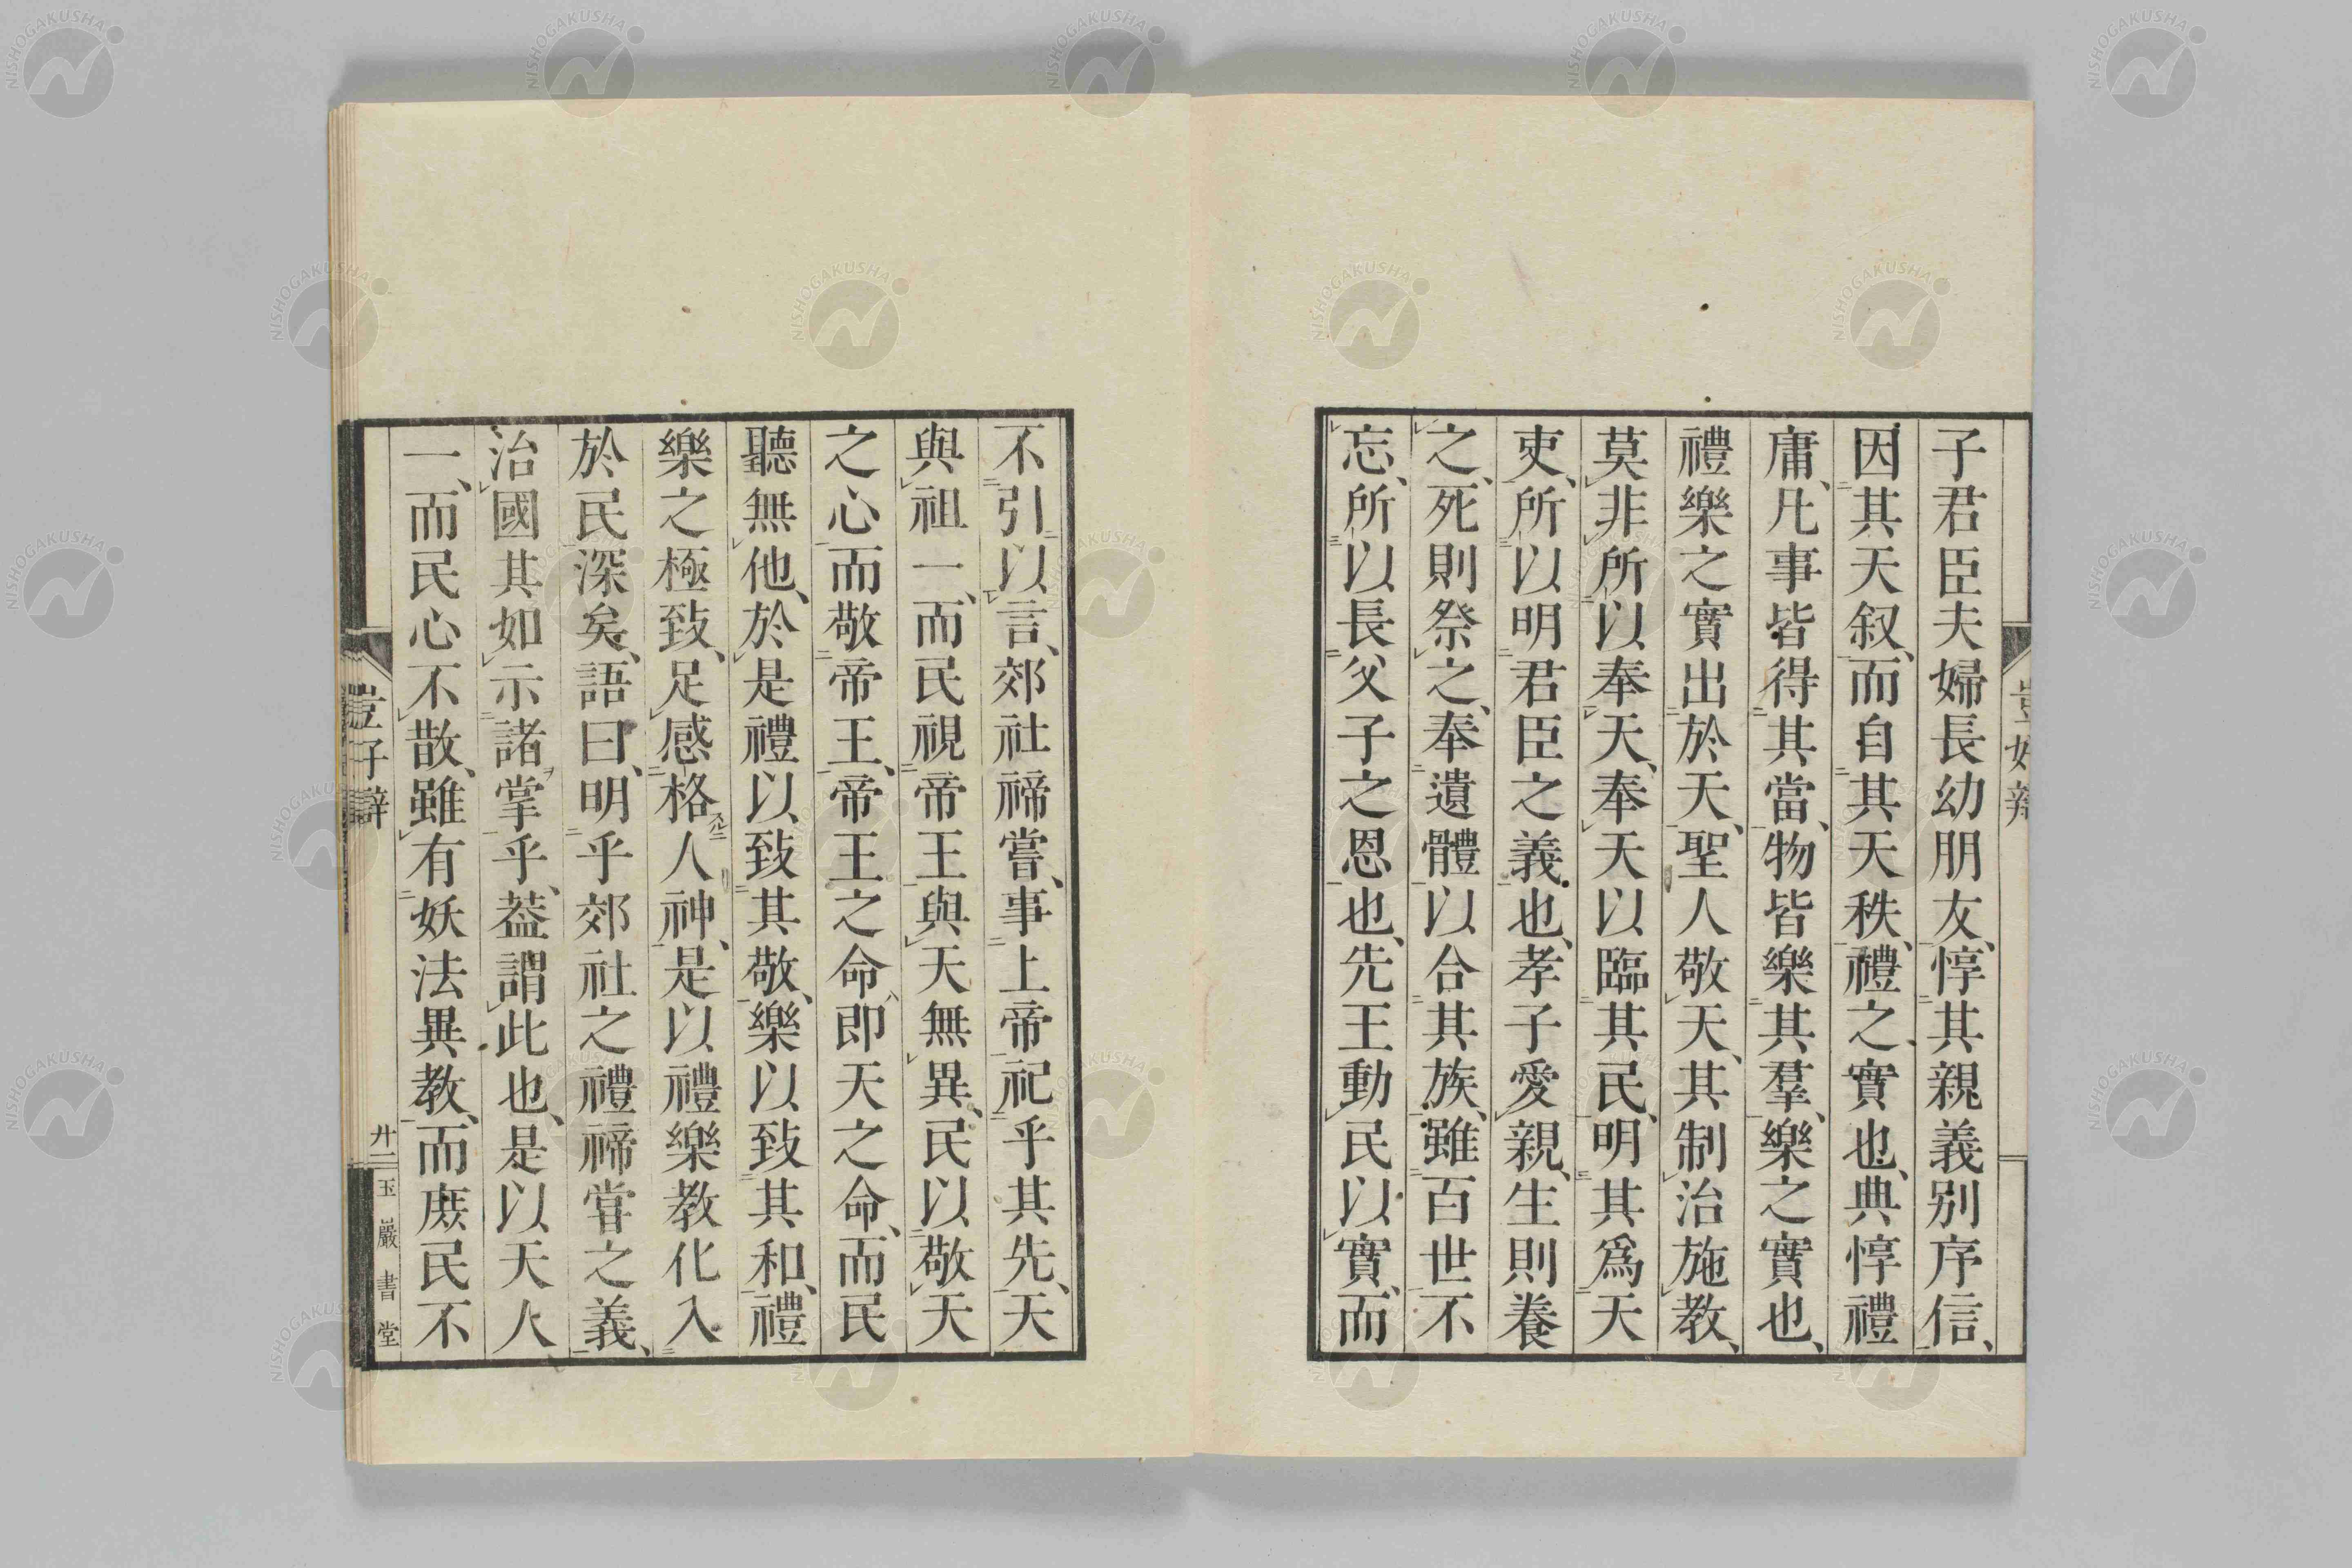 子君臣夫婦長幼朋友、惇其親義別序信、
因其天叙、而自其天秩、禮之實也、典惇禮
庸、凡事皆得其當、物皆樂其羣、樂之實也、
禮樂之實出於天、聖人敬天、其制治施教、
莫非所以奉天、奉天以臨其民、明其爲天
吏、所以明君臣之義也、孝子愛親、生則養
之、死則祭之、奉遺體以合其族、雖百世不
忘、所以長父子之恩也、先王動民以實、而
不引以言、郊社禘嘗、事上帝祀乎其先、天
與祖一、而民視帝王與天無異、民以敬天
之心而敬帝王、帝王之命、即天之命、而民
聽無他、於是禮以致其敬、樂以致其和、禮
樂之極致、足感格人神、是以禮樂教化入
於民深矣、語曰、明乎郊社之禮禘嘗之義、
治國其如示諸掌乎、葢謂此也、是以天人
一、而民心不散、雖有妖法異教、而庶民不
廿二
玉巖書堂
NISHOGAKUSHA